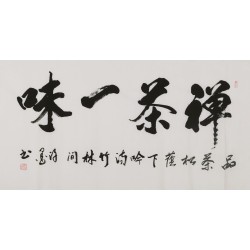 禅茶一味
品茶松荫下吟诗竹林间
书